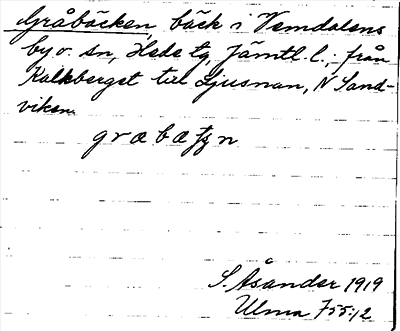 Gråbäcken, bäck i Vemdalens
by o. sn, Hede tg Jämtl. l., från
Kalkberget till Ljusnan, N Sand-
viken
S. Åsander 1919
Ulma 755:12